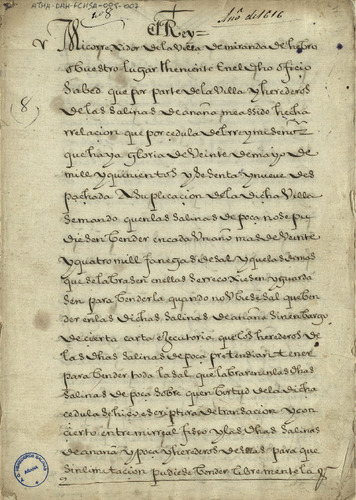 ATHA-DAH-FCHSA-085-002
Año de 1616
108
El Rey=
(8)
Mi corregidor de la villa de miranda de hebro
o Vuestro lugar theniente en el dho officio
Sabed que por parte de la Villa y herederos
de las salinas de añana me a sido hecha
rrelacion que por cedula del rrey mi señor
que haya gloria de Veinte de mayo de
mill y quinientos y setenta y nueve des
pachada A suplicacion de la dicha Villa
se mando que en las salinas de poça no se pu
diesen Vender en cada Vn año mas de Veinte
y quatro mill fanegas de sal y que las demas
que se labrasen en ellas se rrecoxiesen y guarda
sen para Venderla quando no Vbiese sal que ben
der en las dichas salinas de añana sin enbargo
de cierta carta executoria que los herederos de
las dhas salinas de poça pretendian tener
para bender toda la sal que labraren en las dhas
salinas de poça sobre que en birtud de la dicha
cedula se hiço escriptura de transacion y con
cierto entre mi rreal fisco y las dhas salinas
de añana y poça y herederos dellas para que
sin limitacion pudiese bender libremente la